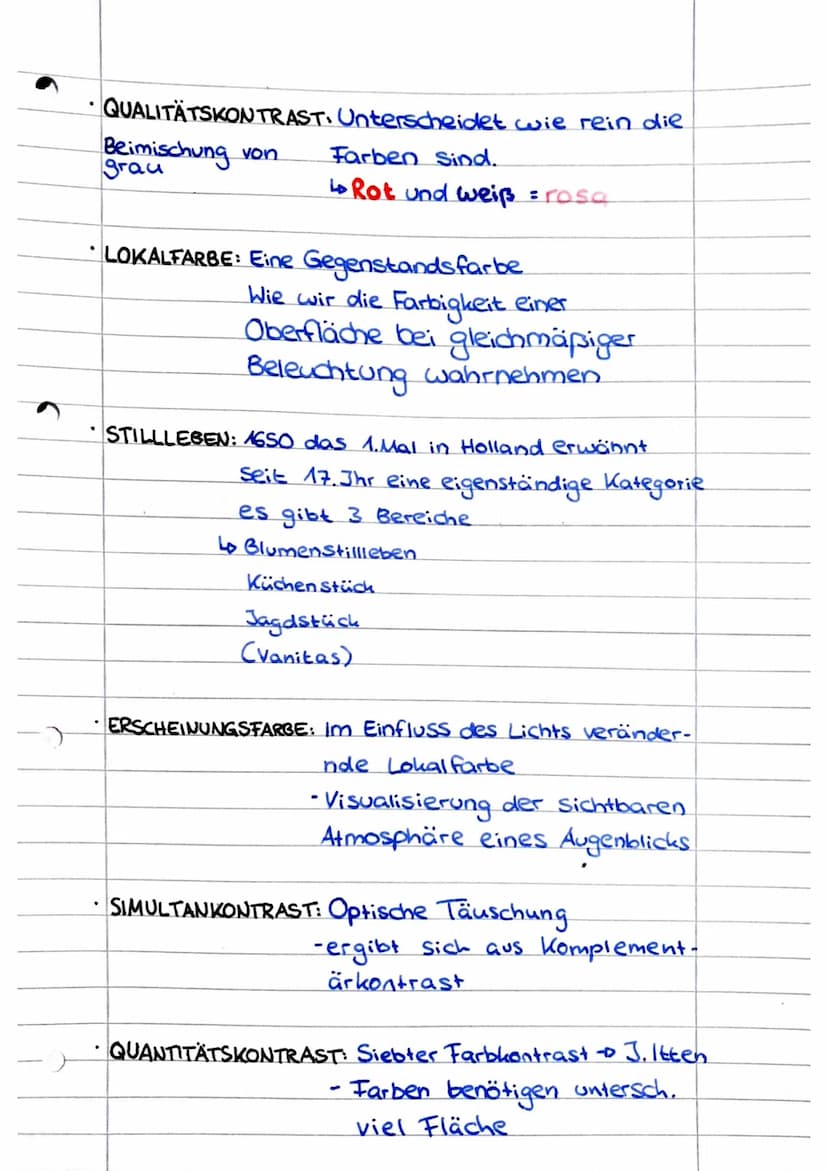 · QUALITÄTSKONTRAST: Unterscheidet wie rein die
Beimischung von Farben sind.
grau
↳ Rot und weiß = rosa
· LOKALFARBE: Eine Gegenstandsfarbe
Wie wir die Farbigkeit einer
Oberfläche bei gleichmäßiger
Beleuchtung wahrnehmen
· STILLLEBEN: 1650 das 1.Mal in Holland erwähnt
Seit 17.Jhr eine eigenständige Kategorie
es gibt 3 Bereiche
↳ Blumenstillleben
Küchenstück
Jagdstück
(Vanitas)
· ERSCHEINUNGSFARBE: Im Einfluss des Lichts veränder-
nde Lokalfarbe
· Visualisierung der sichtbaren
Atmosphäre eines Augenblicks
· SIMULTANKONTRAST: Optische Täuschung
-ergibt sich aus Komplement-
ärkontrast
· QUANTITÄTSKONTRAST: Siebter Farbkontrast → J. Itten
- Farben benötigen untersch.
viel Fläche